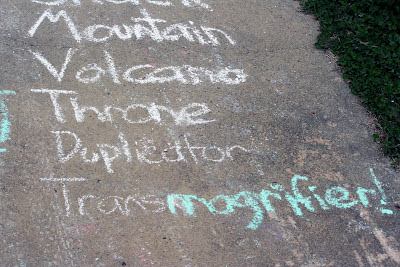 Mountain
Volcano
Throne
Duplicator
Transmogrifier!